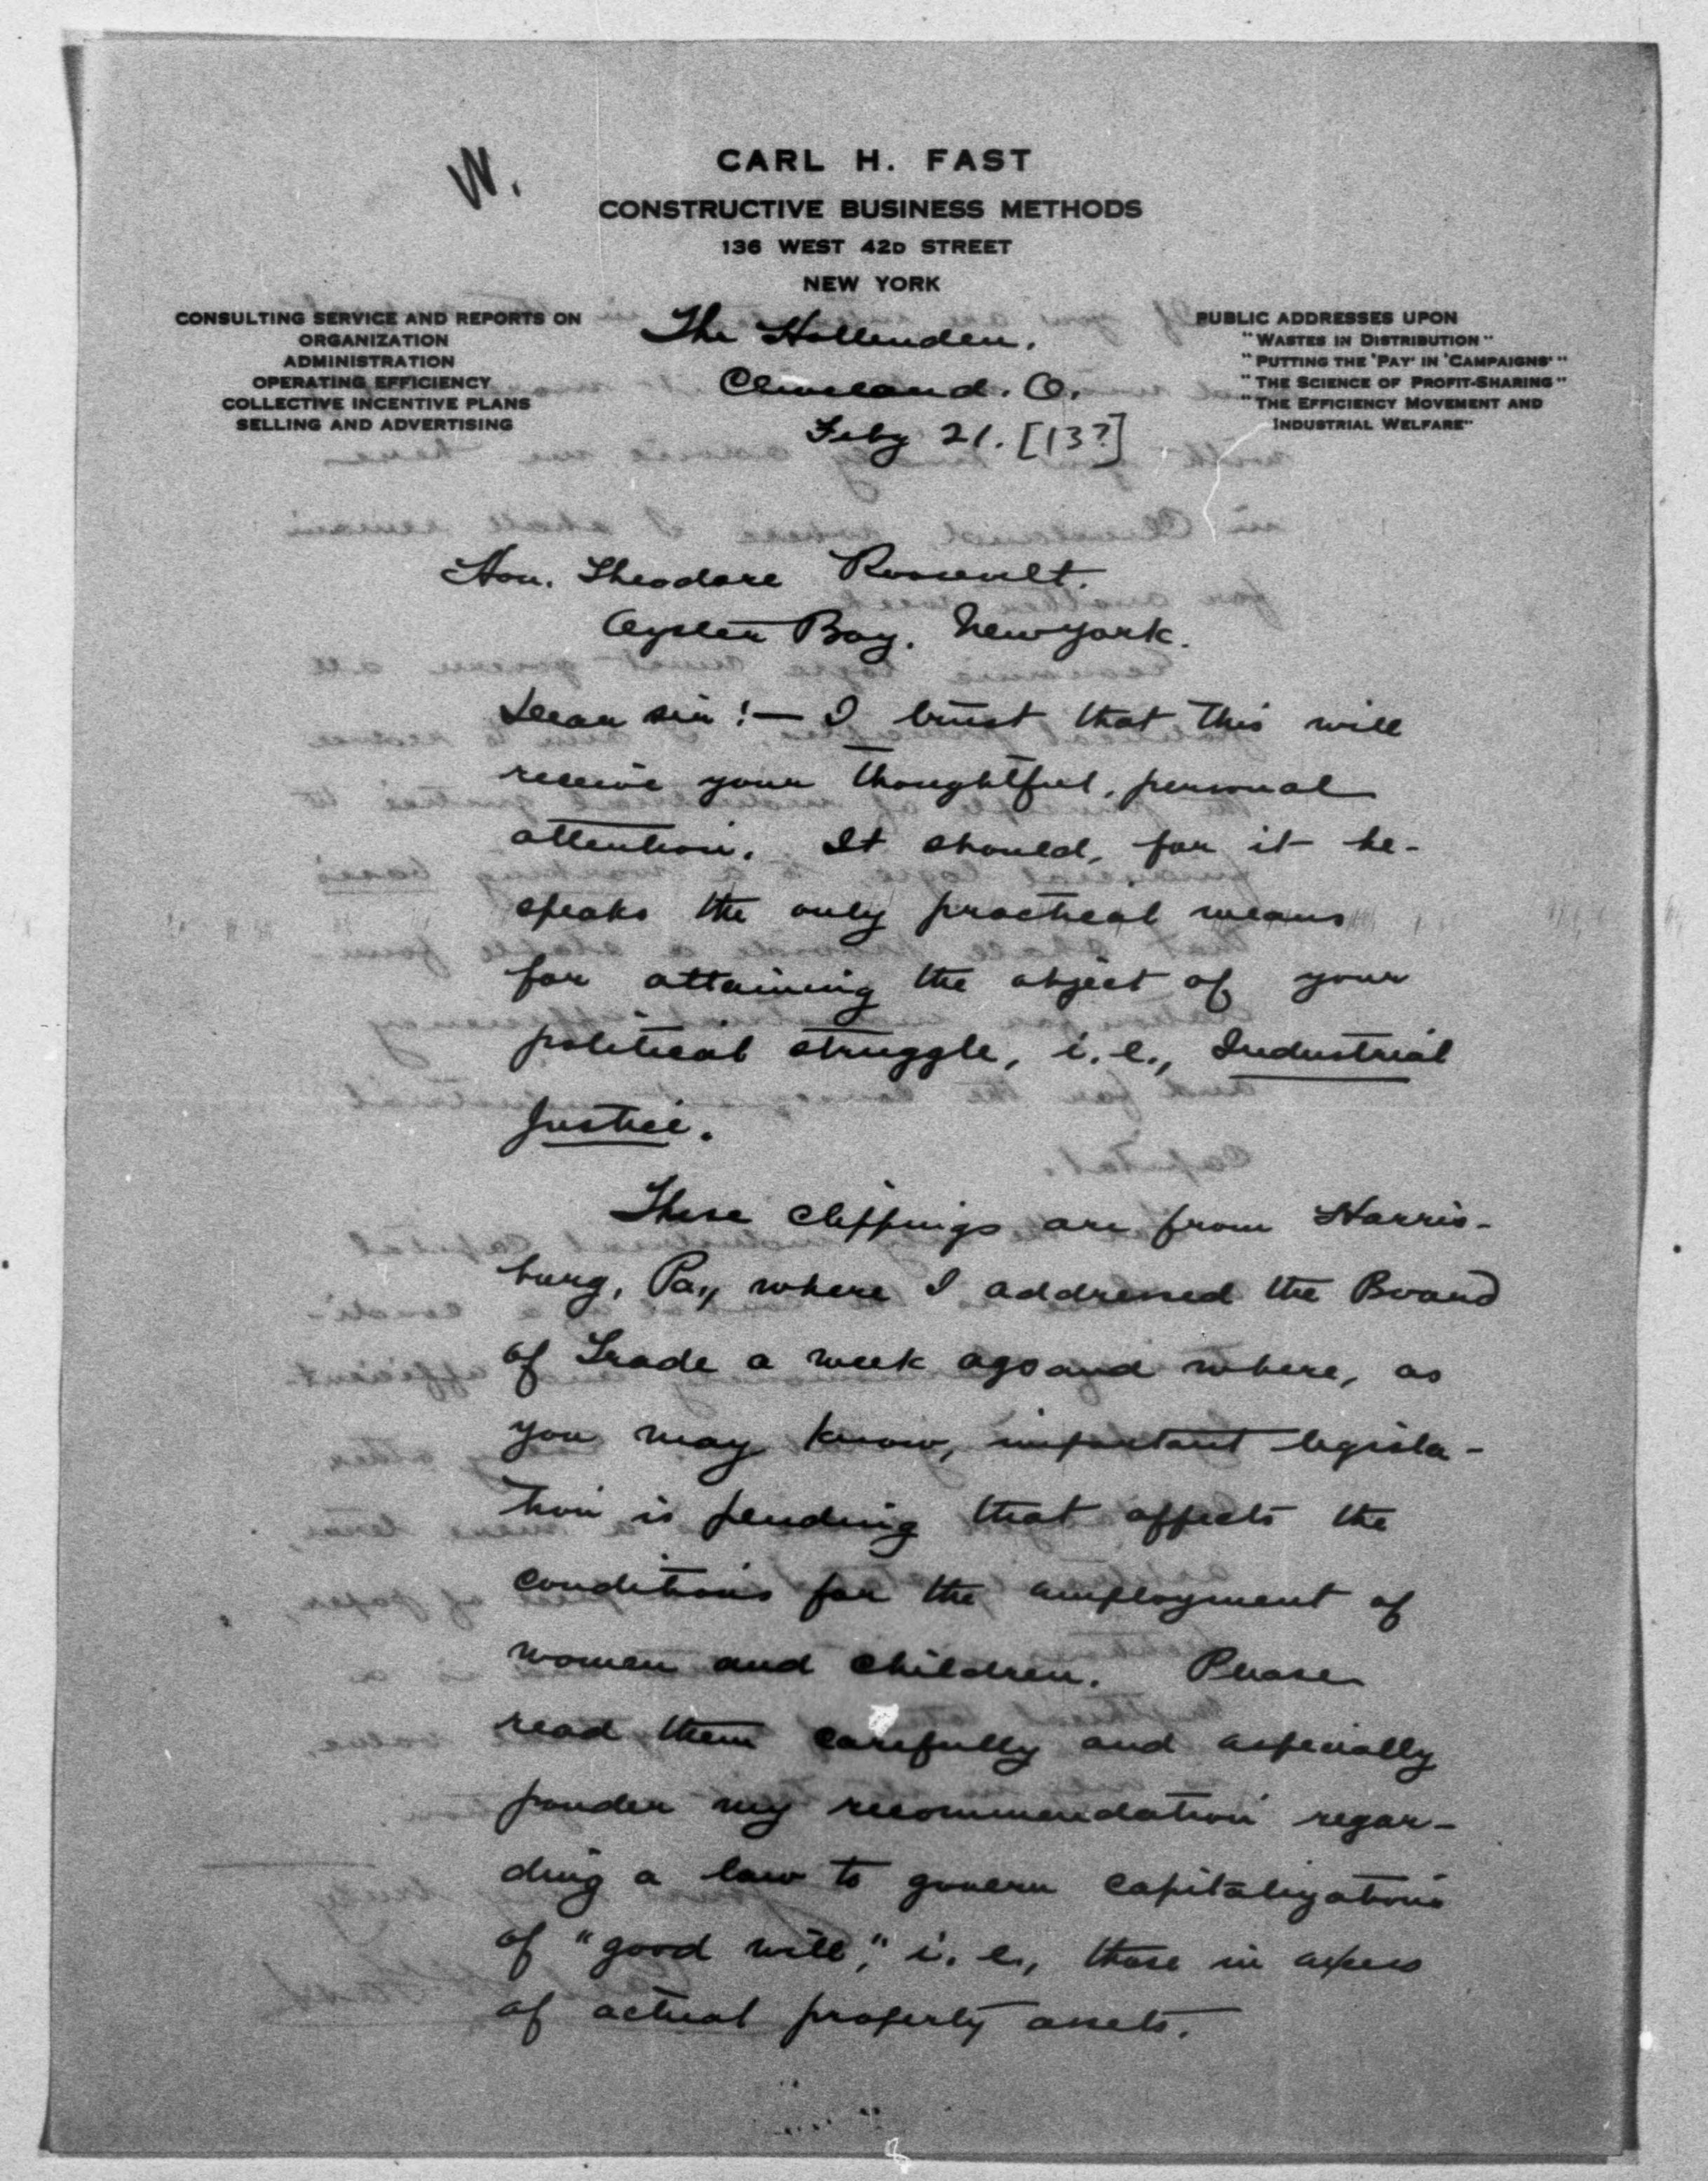 W.
CARL H. FAST
CONSTRUCTIVE BUSINESS METHODS
136 WEST 42D STREET
NEW YORK
CONSULTING SERVICE AND REPORTS ON
ORGANIZATION
ADMINISTRATION
OPERATING EFFICIENCY
COLLECTIVE INCENTIVE PLANS
SELLING AND ADVERTISING
PUBLIC ADDRESSES UPON
"WASTES IN DISTRIBUTION"
"PUTTING THE 'PAY' IN 'CAMPAIGNS'"
"THE SCIENCE OF PROFIT-SHARING"
"THE EFFICIENCY MOVEMENT AND
INDUSTRIAL WELFARE"
The Hollenden.
Cleveland. O.
Feby 21. [13?]
Hon. Theodore Roosevelt.
Oyster Bay. New York.
Dear sir!— I trust that this will
receive your thoughtful, personal
attention. It should, for it be-
speaks the only practical means
for attaining the object of your
political struggle, i.e., Industrial
Justice.
These clippings are from Harris-
burg, Pa., where I addressed the Board
of Trade a week ago and where, as
you may know, important legisla-
tion is pending that affects the
conditions for the employment of
women and children. Please
read them carefully and especially
ponder my recommendation regar-
ding a law to govern capitalizations
of "good will," i. e., those in excess
of actual property assets.